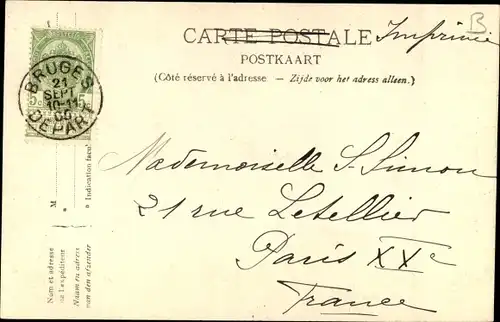 CARTE POSTALE Imprimé
B
POSTKAART
(Côté réservé à l'adresse. — Zijde voor het adress alleen.)
BRUGES
21
SEPT
10-11
DEPART
5c 5c
Mademoiselle S. Simon
21 Rue Letellier
Paris XXe
France
M
* Indication
Nom et adresse
de l'expéditeur
Naam en adress
van den afzender